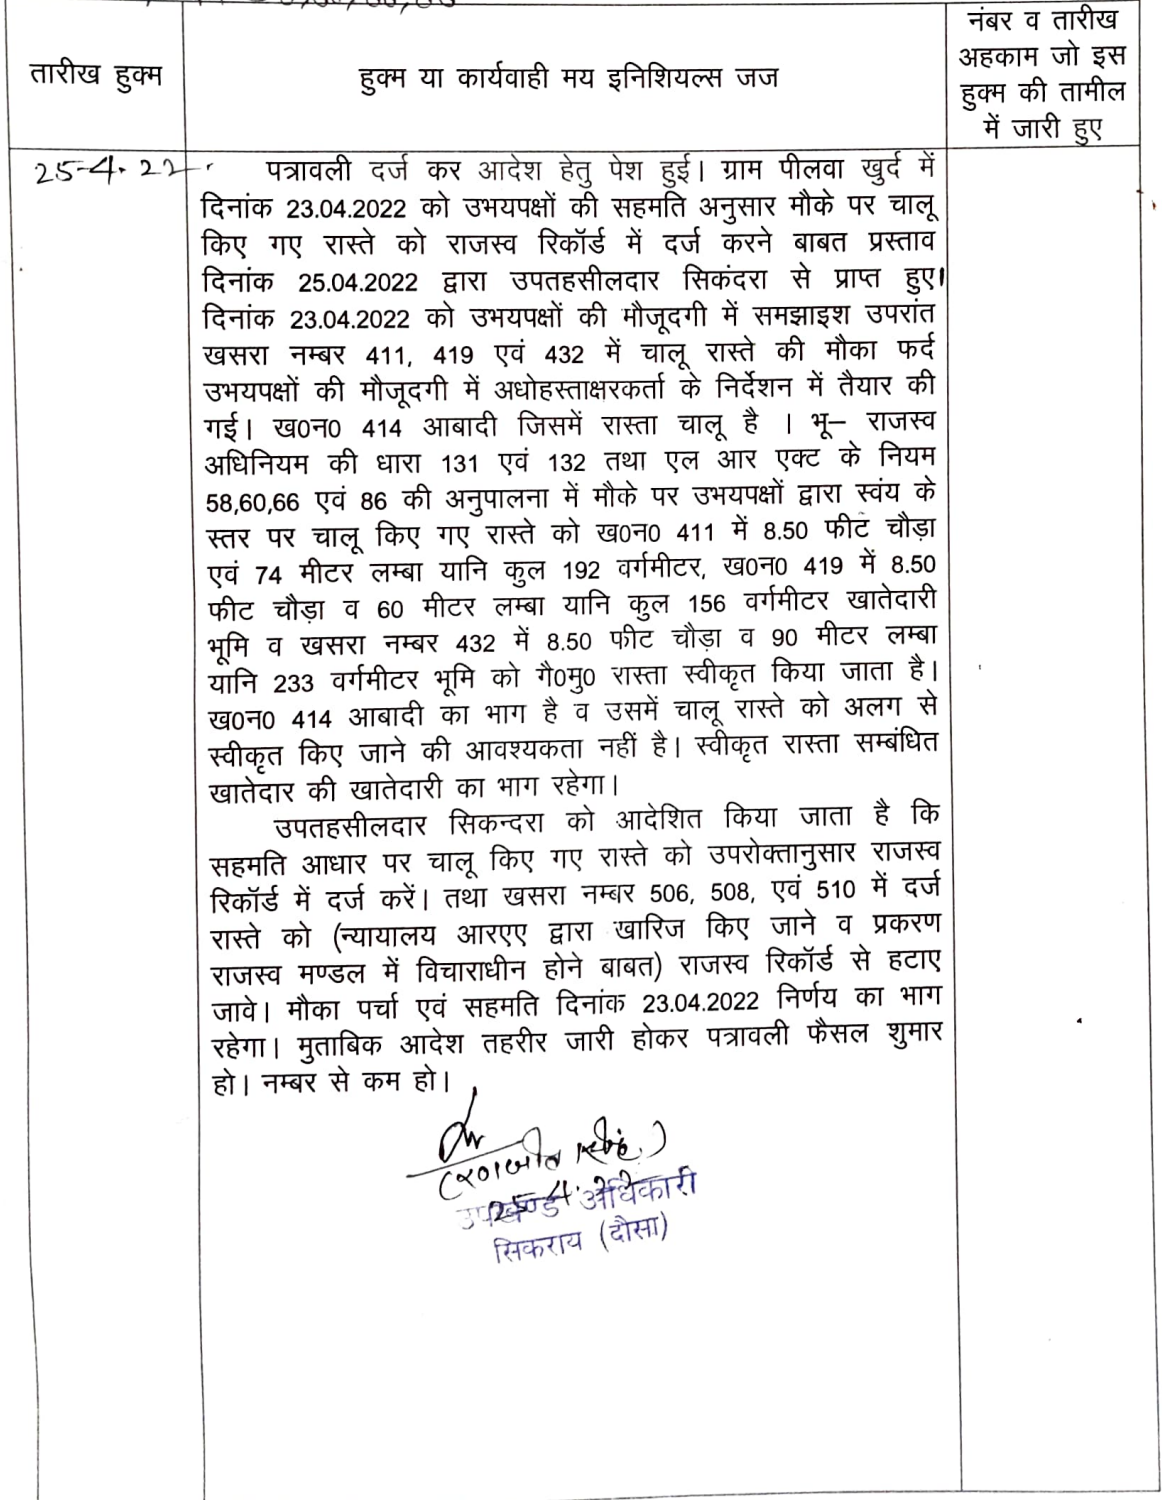 तारीख हुक्म
हुक्म या कार्यवाही मय इनिशियल्स जज
नंबर व तारीख
अहकाम जो इस
हुक्म की तामील
में जारी हुए
25-4-22
पत्रावली दर्ज कर आदेश हेतु पेश हुई। ग्राम पीलवा खुर्द में
दिनांक 23.04.2022 को उभयपक्षों की सहमति अनुसार मौके पर चालू
किए गए रास्ते को राजस्व रिकॉर्ड में दर्ज करने बाबत प्रस्ताव
दिनांक 25.04.2022 द्वारा उपतहसीलदार सिकंदरा से प्राप्त हुए।
दिनांक 23.04.2022 को उभयपक्षों की मौजूदगी में समझाइश उपरांत
खसरा नम्बर 411, 419 एवं 432 में चालू रास्ते की मौका फर्द
उभयपक्षों की मौजूदगी में अधोहस्ताक्षरकर्ता के निर्देशन में तैयार की
गई। ख0न0 414 आबादी जिसमें रास्ता चालू है । भू– राजस्व
अधिनियम की धारा 131 एवं 132 तथा एल आर एक्ट के नियम
58,60,66 एवं 86 की अनुपालना में मौके पर उभयपक्षों द्वारा स्वंय के
स्तर पर चालू किए गए रास्ते को ख0न0 411 में 8.50 फीट चौड़ा
एवं 74 मीटर लम्बा यानि कुल 192 वर्गमीटर, ख0न0 419 में 8.50
फीट चौड़ा व 60 मीटर लम्बा यानि कुल 156 वर्गमीटर खातेदारी
भूमि व खसरा नम्बर 432 में 8.50 फीट चौड़ा व 90 मीटर लम्बा
यानि 233 वर्गमीटर भूमि को गै0मु0 रास्ता स्वीकृत किया जाता है।
ख0न0 414 आबादी का भाग है व उसमें चालू रास्ते को अलग से
स्वीकृत किए जाने की आवश्यकता नहीं है। स्वीकृत रास्ता सम्बंधित
खातेदार की खातेदारी का भाग रहेगा।
उपतहसीलदार सिकन्दरा को आदेशित किया जाता है कि
सहमति आधार पर चालू किए गए रास्ते को उपरोक्तानुसार राजस्व
रिकॉर्ड में दर्ज करें। तथा खसरा नम्बर 506, 508, एवं 510 में दर्ज
रास्ते को (न्यायालय आरएए द्वारा खारिज किए जाने व प्रकरण
राजस्व मण्डल में विचाराधीन होने बाबत) राजस्व रिकॉर्ड से हटाए
जावे। मौका पर्चा एवं सहमति दिनांक 23.04.2022 निर्णय का भाग
रहेगा। मुताबिक आदेश तहरीर जारी होकर पत्रावली फैसल शुमार
हो। नम्बर से कम हो।
25-4-22
उपखण्ड अधिकारी
सिकराय (दौसा)